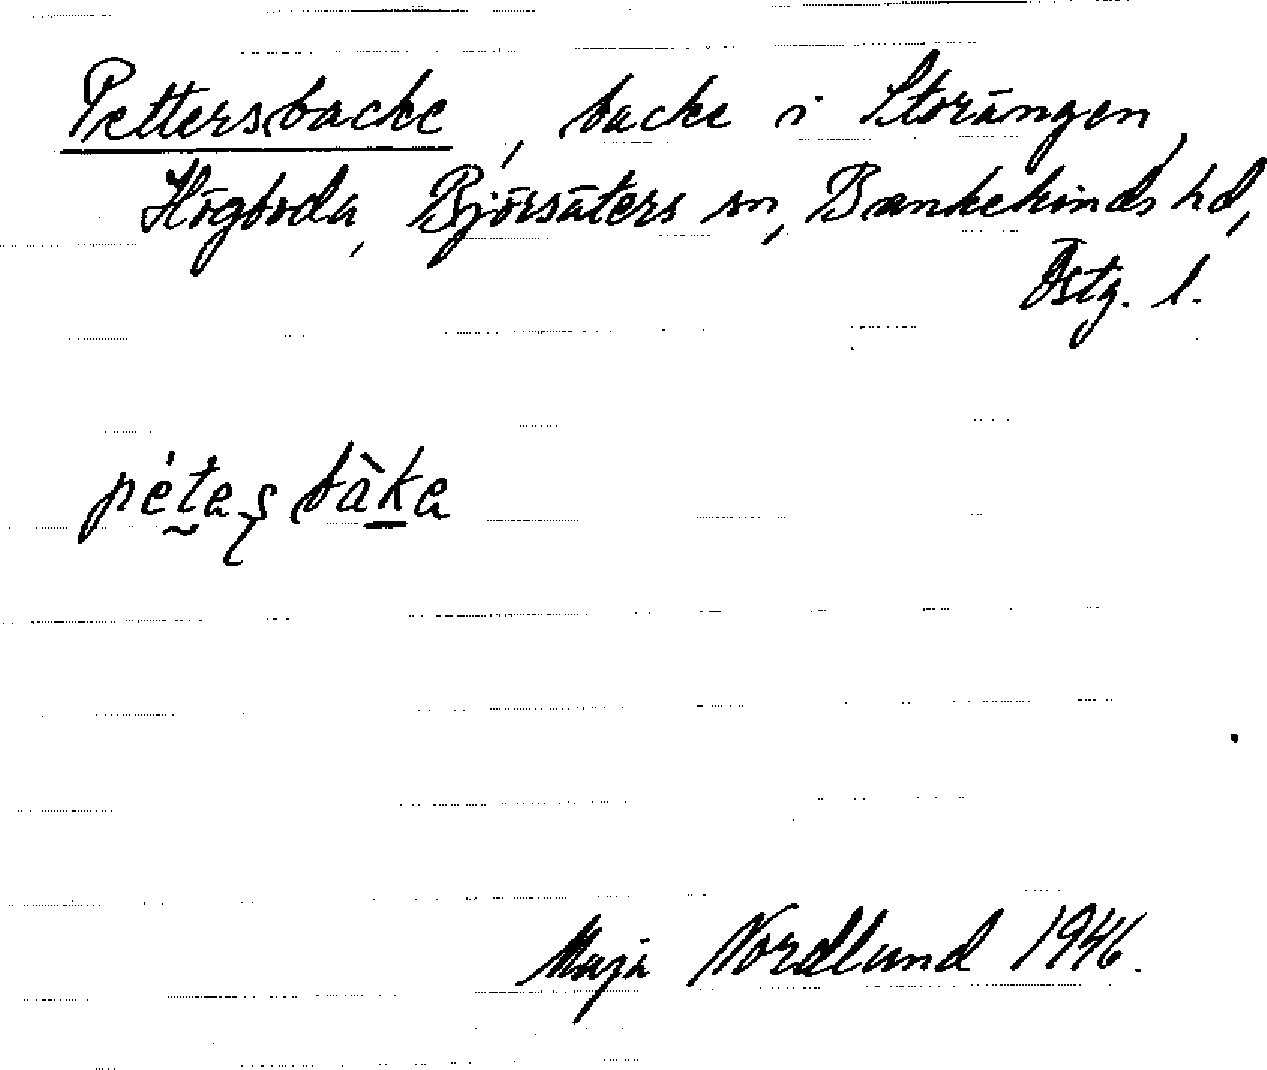 Pettersbacke, backe i Storängen,
Högboda, Björsäters sn, Bankekinds hd,
Östg. l.
Maja Nordlund 1946.